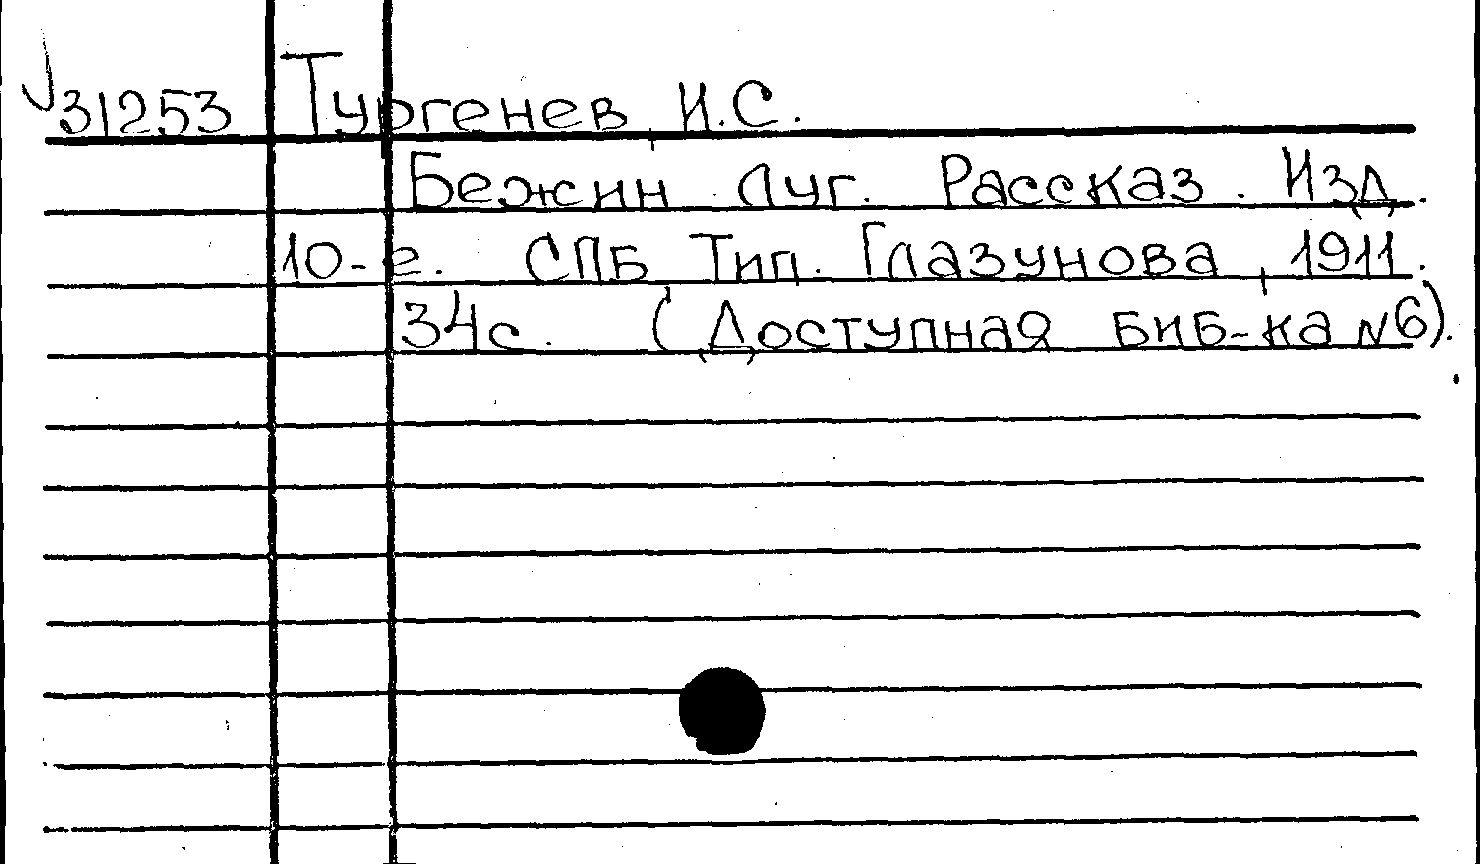 31253 Тургенев, И.С.
Бежин луг. Рассказ. Изд.
10-е. СПБ Тип. Глазунова, 1911.
34с. (Доступная биб-ка №6).